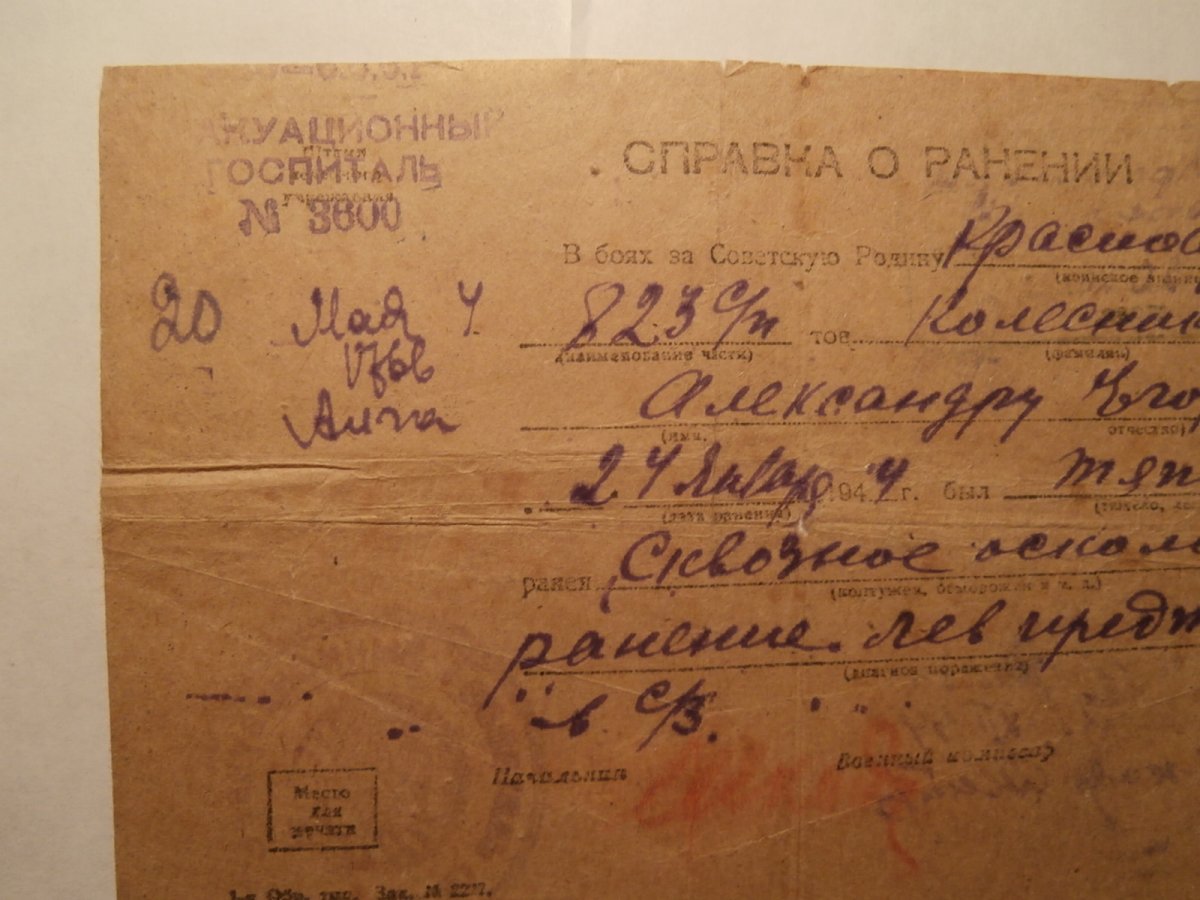 АКУАЦИОННЫЙ
ГОСПИТАЛЬ
№ 3600
СПРАВКА О РАНЕНИИ
В боях за Советскую Родину Красноа
(воинское звание
20 Мая 4 823 с/п тов. Колесник
(наименование части) (фамилия)
Александру Его
(имя, отчество)
24 Января 194 4 г. был тяж
(дата ранения) (тяжело, ле
ранен Сквозное оскол
(контужен, обморожен и т. д.)
ранение лев предп
(диагноз поражения)
в с/з.
Начальник Военный комиссар
Место
для
печати
1-я Обр. тип. Зак. №